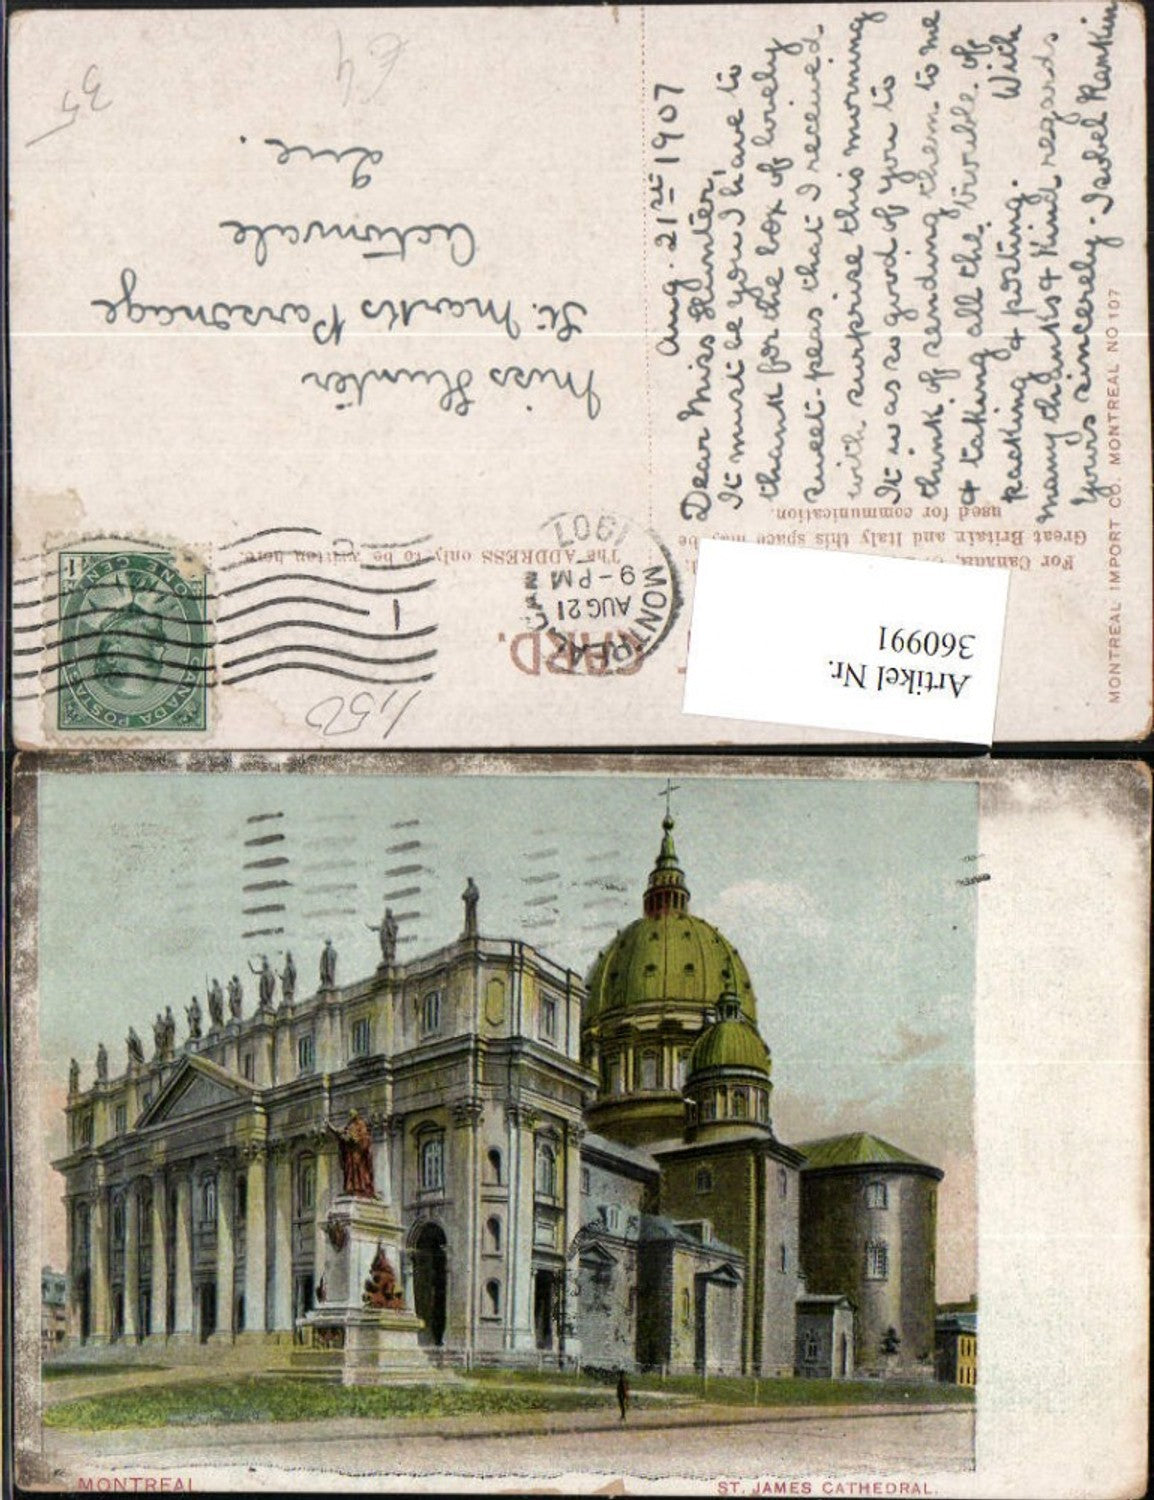 35
£4
Aug. 21st 1907
Dear Miss Hunter,
It must be you I have to
thank for the box of lovely
sweet-peas that I received
with surprise this morning
It was so good of you to
think of sending them to me
& taking all the trouble of
packing & posting. With
many thanks & kind regards
Yours sincerely. Isobel Rankin
Miss Hunter
St. Mark's Parsonage
Actonvale
Que.
For Canada,
Great Britain and Italy this space may be
used for communication.
The ADDRESS only to be written here.
CARD.
MONTREAL
AUG 21
9-PM
1907
1
CANADA POSTAGE
ONE CENT
1
1,50
Artikel Nr.
360991
MONTREAL IMPORT CO. MONTREAL NO 107
MONTREAL
ST. JAMES CATHEDRAL.